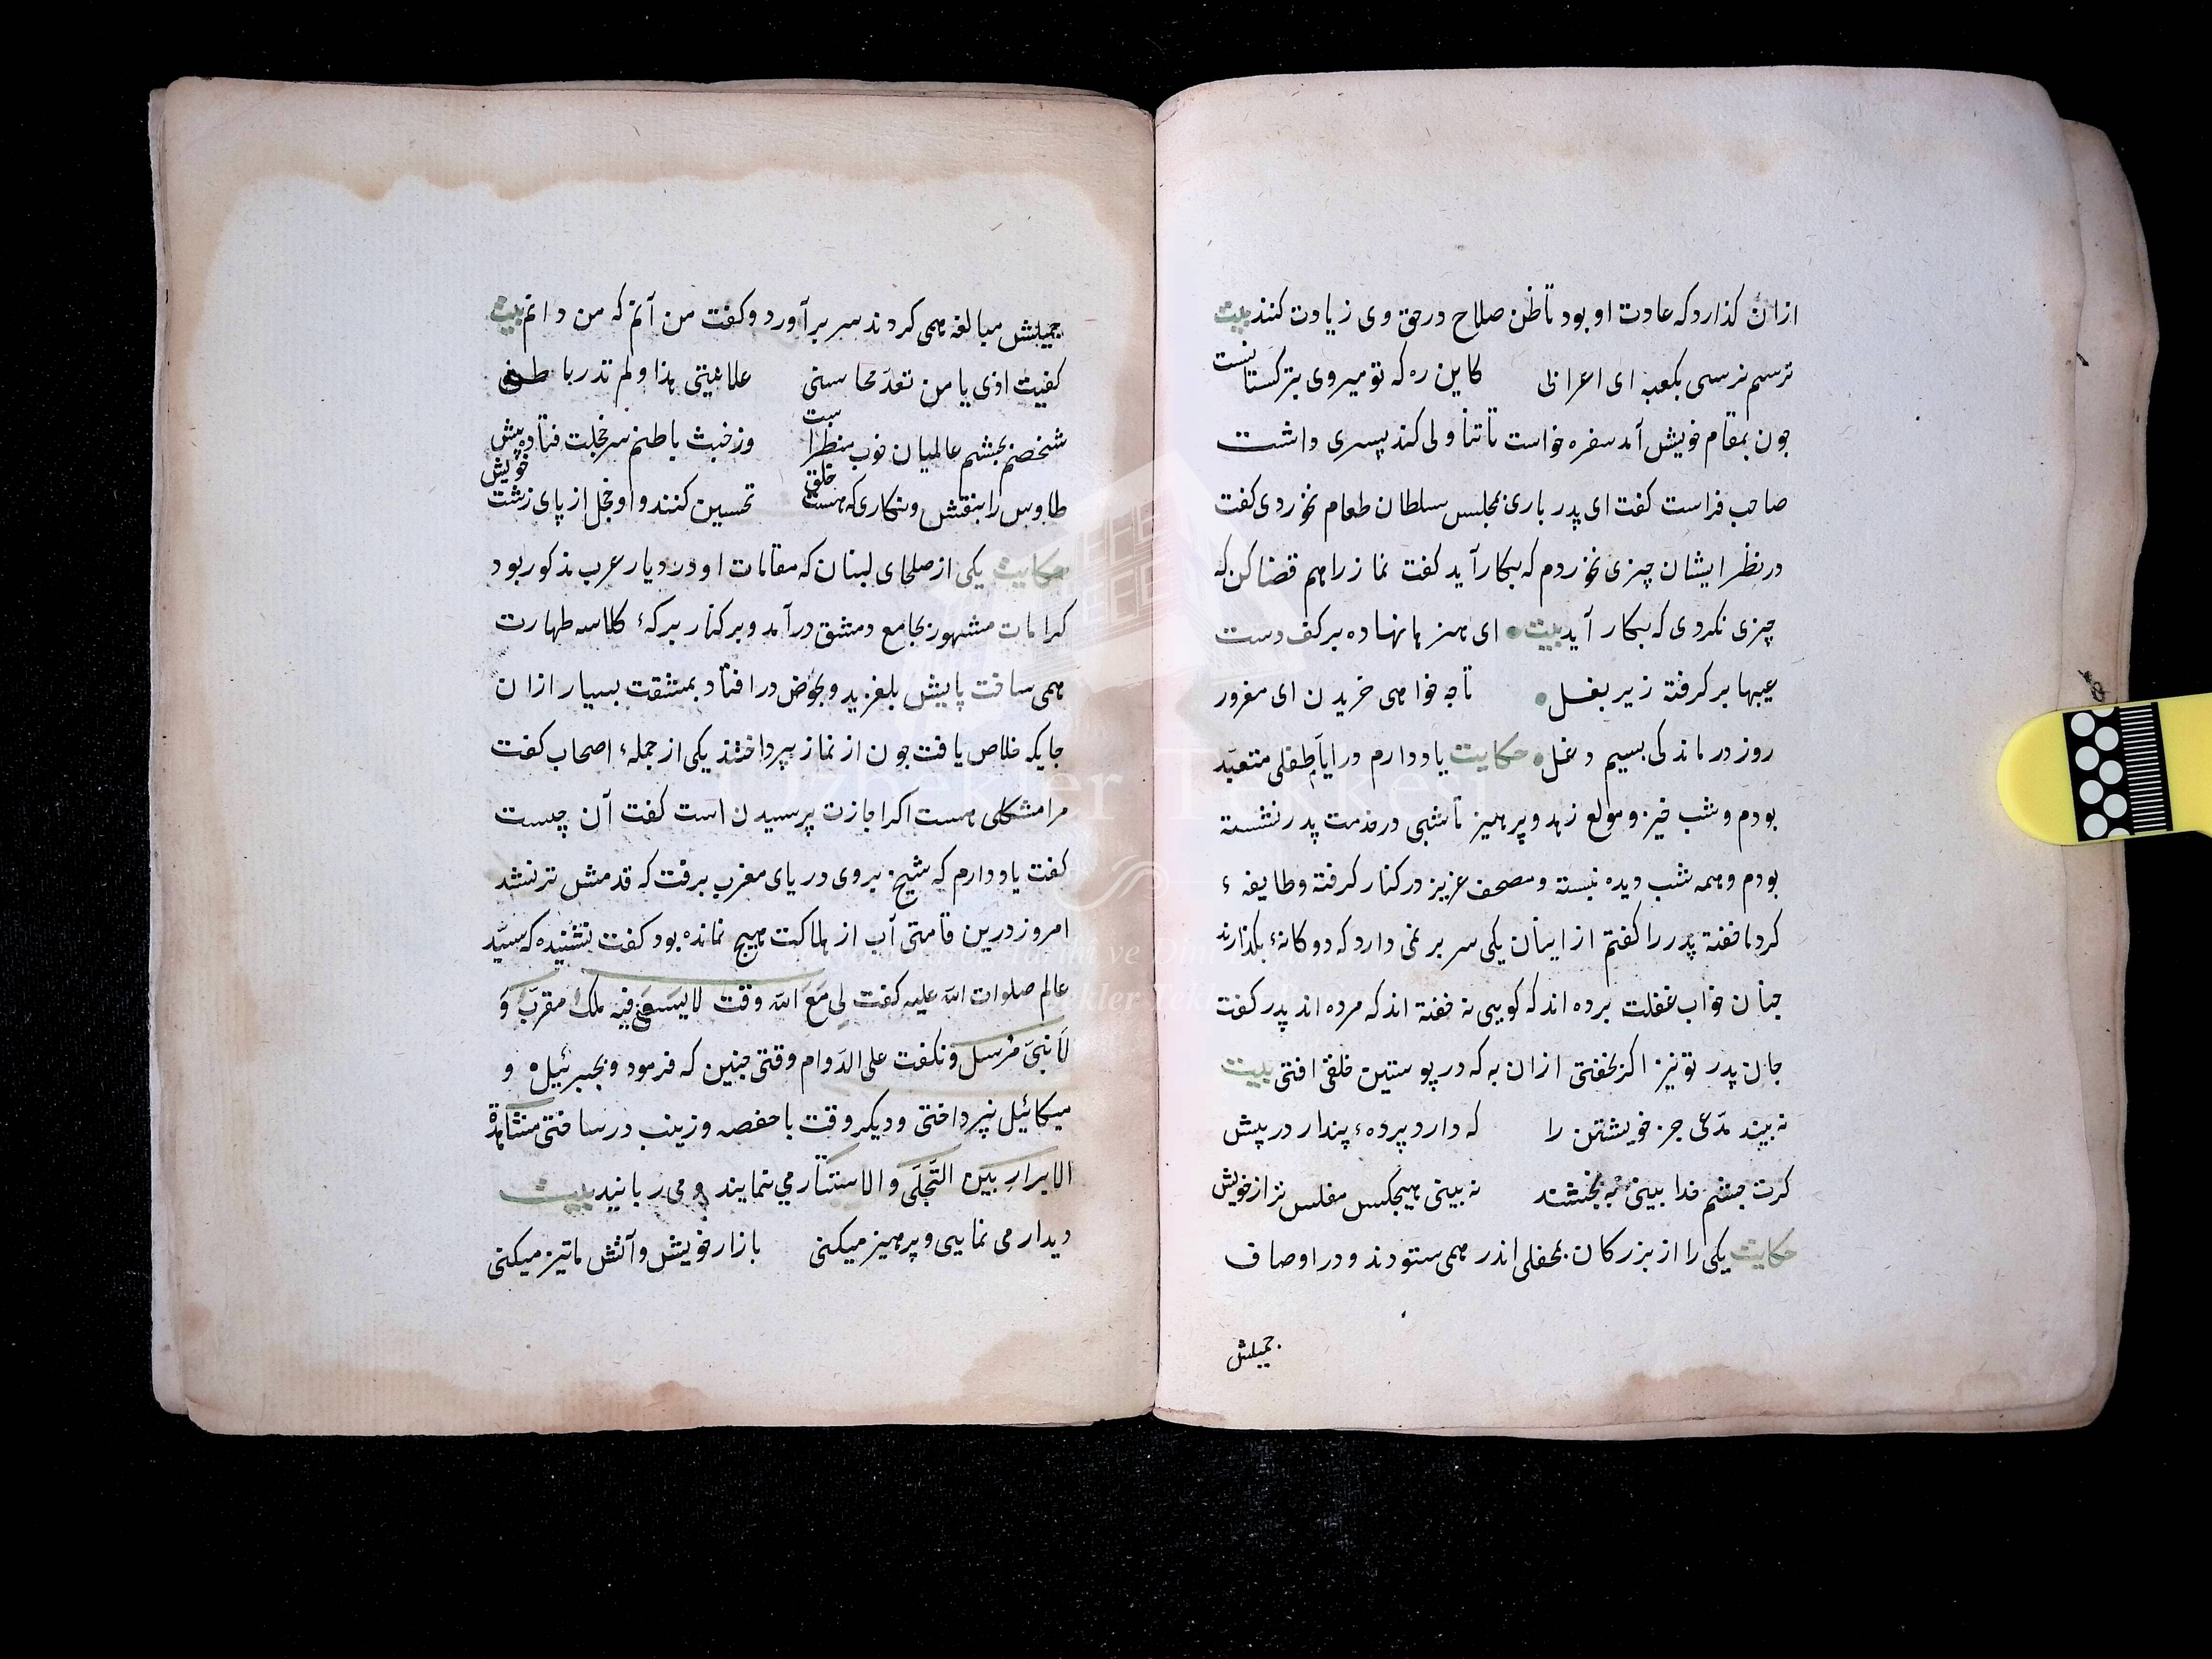 ازان کذارد که عادت او بود تا ظن صلاح در حق وی زیادت کنند بیت
ترسم نرسی بکعبه ای اعرابی کاین ره که تو میروی بترکستانست
جون بمقام خویش آمد سفره خواست تا تناولی کند پسری داشت
صاحب فراست کفت ای پدر باری بمجلس سلطان طعام نخوردی کفت
در نظر ایشان چیزی نخوردم که بکار آید کفت نماز را هم قضا کن که
چیزی نکردی که بکار آید بیت ای هنرها نهاده بر کف دست
عیبها بر کرفته زیر بغل تا جه خواهی خریدن ای مغرور
روز درماندکی بسیم دغل حکایت یاد دارم در ایام طفلی متعبّد
بودم و شب خیز و مولع زهد و پرهیز تا شبی در خدمت پدر نشسته
بودم و همه شب دیده نبسته و مصحف عزیز در کنار کرفته و طایفه ء
کرد ما خفته پدر را کفتم از اینان یکی سر بر نمی دارد که دوکانهٔ بکذارند
جنان خواب غفلت برده اند که کویی نه خفته اند که مرده اند پدر کفت
جان پدر تو نیز اکر بخفتی ازان به که در پوستین خلق افتی بیت
نه بیند مدّعی جز خویشتن را که دارد پردهء پندار در پیش
کرت جشم خدا بینی به بخشند نه بینی هیجکس مفلس تر از خویش
حکایت یکی را از بزرکان بمحفلی اندر همی ستودند و در اوصاف
جمیلش
جمیلش مبالغه همی کردند سر بر آورد و کفت من آنم که من دانم بیت
کفیت اذی یا من تعدّ محاسنی علانیتی هذا ولم تدر باطنی
شخصم بجشم عالمیان خوب منظرست وز خبث باطنم سر خجلت فتاده پیش
طاوس را بنقش و نکاری که هست خلق تحسین کنند و او خجل از پای زشت خویش
حکایت یکی از صلحای لبنان که مقامات او در دیار عرب مذکور بود
کرامات مشهور بجامع دمشق در آمد و بر کنار برکهٔ کلاسه طهارت
همی ساخت پایش بلغزید و بحوض در افتاد بمشقت بسیار ازان
جایکه خلاص یافت جون از نماز بپرداختند یکی از جملهء اصحاب کفت
مرا مشکلی هست اکر اجازت پرسیدن است کفت آن چیست
کفت یاد دارم که شیخ بروی دریای مغرب برفت که قدمش تر نشد
امروز درین قامتی آب از هلاکت هیچ نمانده بود کفت نشنیده که سیّد
عالم صلوات الله علیه کفت لی مَعَ الله وقت لا یسعنی فیه ملک مقرّب وَ
لا نبیّ مُرسل و نکفت علی الدّوام وقتی جنین که فرمود و بجبرئیل و
میکائیل نپرداختی و دیکر وقت با حفصه و زینب در ساختی مشاهدة
الابرار بین التّجلّی و الاستتار می نمایند و می ربایند بیت
دیدار می نمایی و پرهیز میکنی بازار خویش و آتش ما تیز میکنی